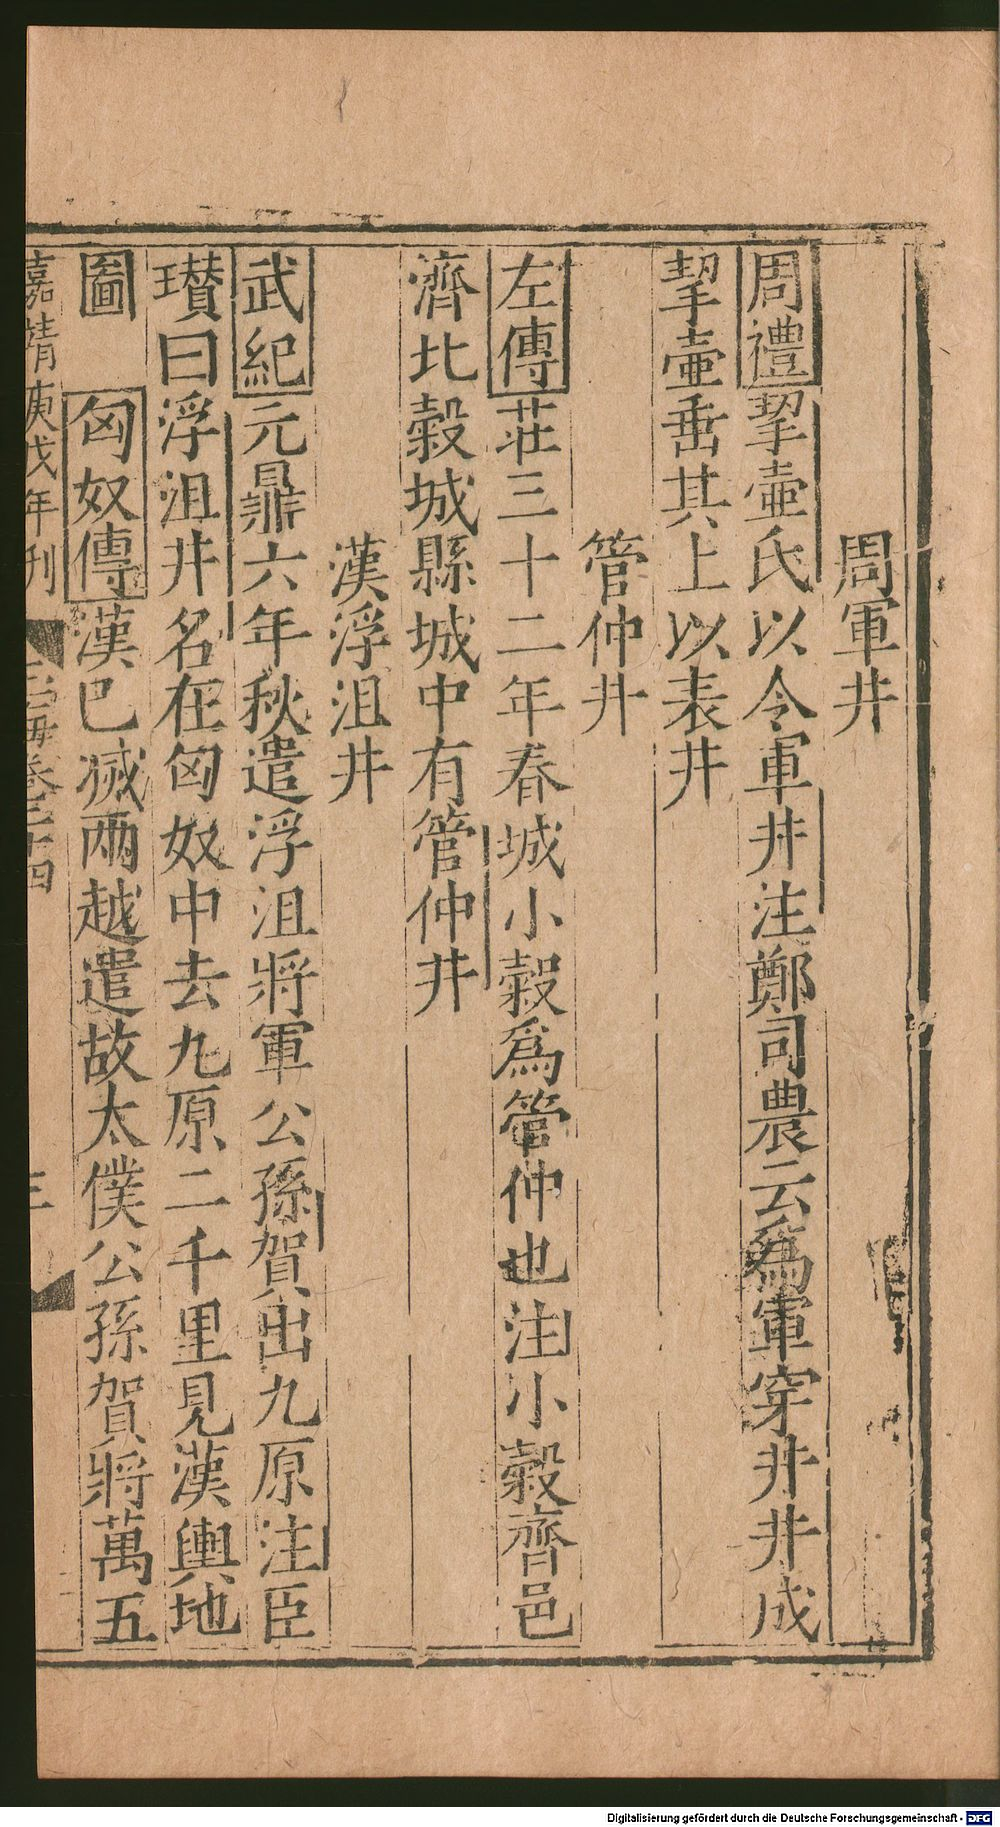 周軍井
周禮挈壺氏以令軍井注鄭司農云爲軍穿井井成
挈壺垂其上以表井
管仲井
左傳莊三十二年春城小榖爲管仲也注小榖齊邑
濟北榖城縣城中有管仲井
漢浮沮井
武紀元鼎六年秋遣浮沮將軍公孫賀出九原注臣
瓉曰浮沮井名在匈奴中去九原二千里見漢輿地
圖 匈奴傳漢已滅兩越遣故太僕公孫賀將萬五
嘉靖庚戌年刊 玉海卷二十四 三
Digitalisierung gefördert durch die Deutsche Forschungsgemeinschaft - DFG